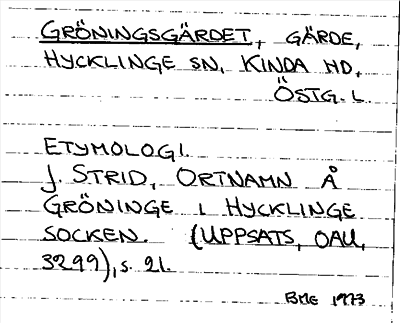 GRÖNINGSGÄRDET, GÄRDE,
HYCKLINGE SN, KINDA HD,
ÖSTG. L.
ETYMOLOGI.
J. STRID, ORTNAMN Å
GRÖNINGE I HYCKLINGE
SOCKEN. (UPPSATS, OAU,
3299), s. 21.
BMG 1973